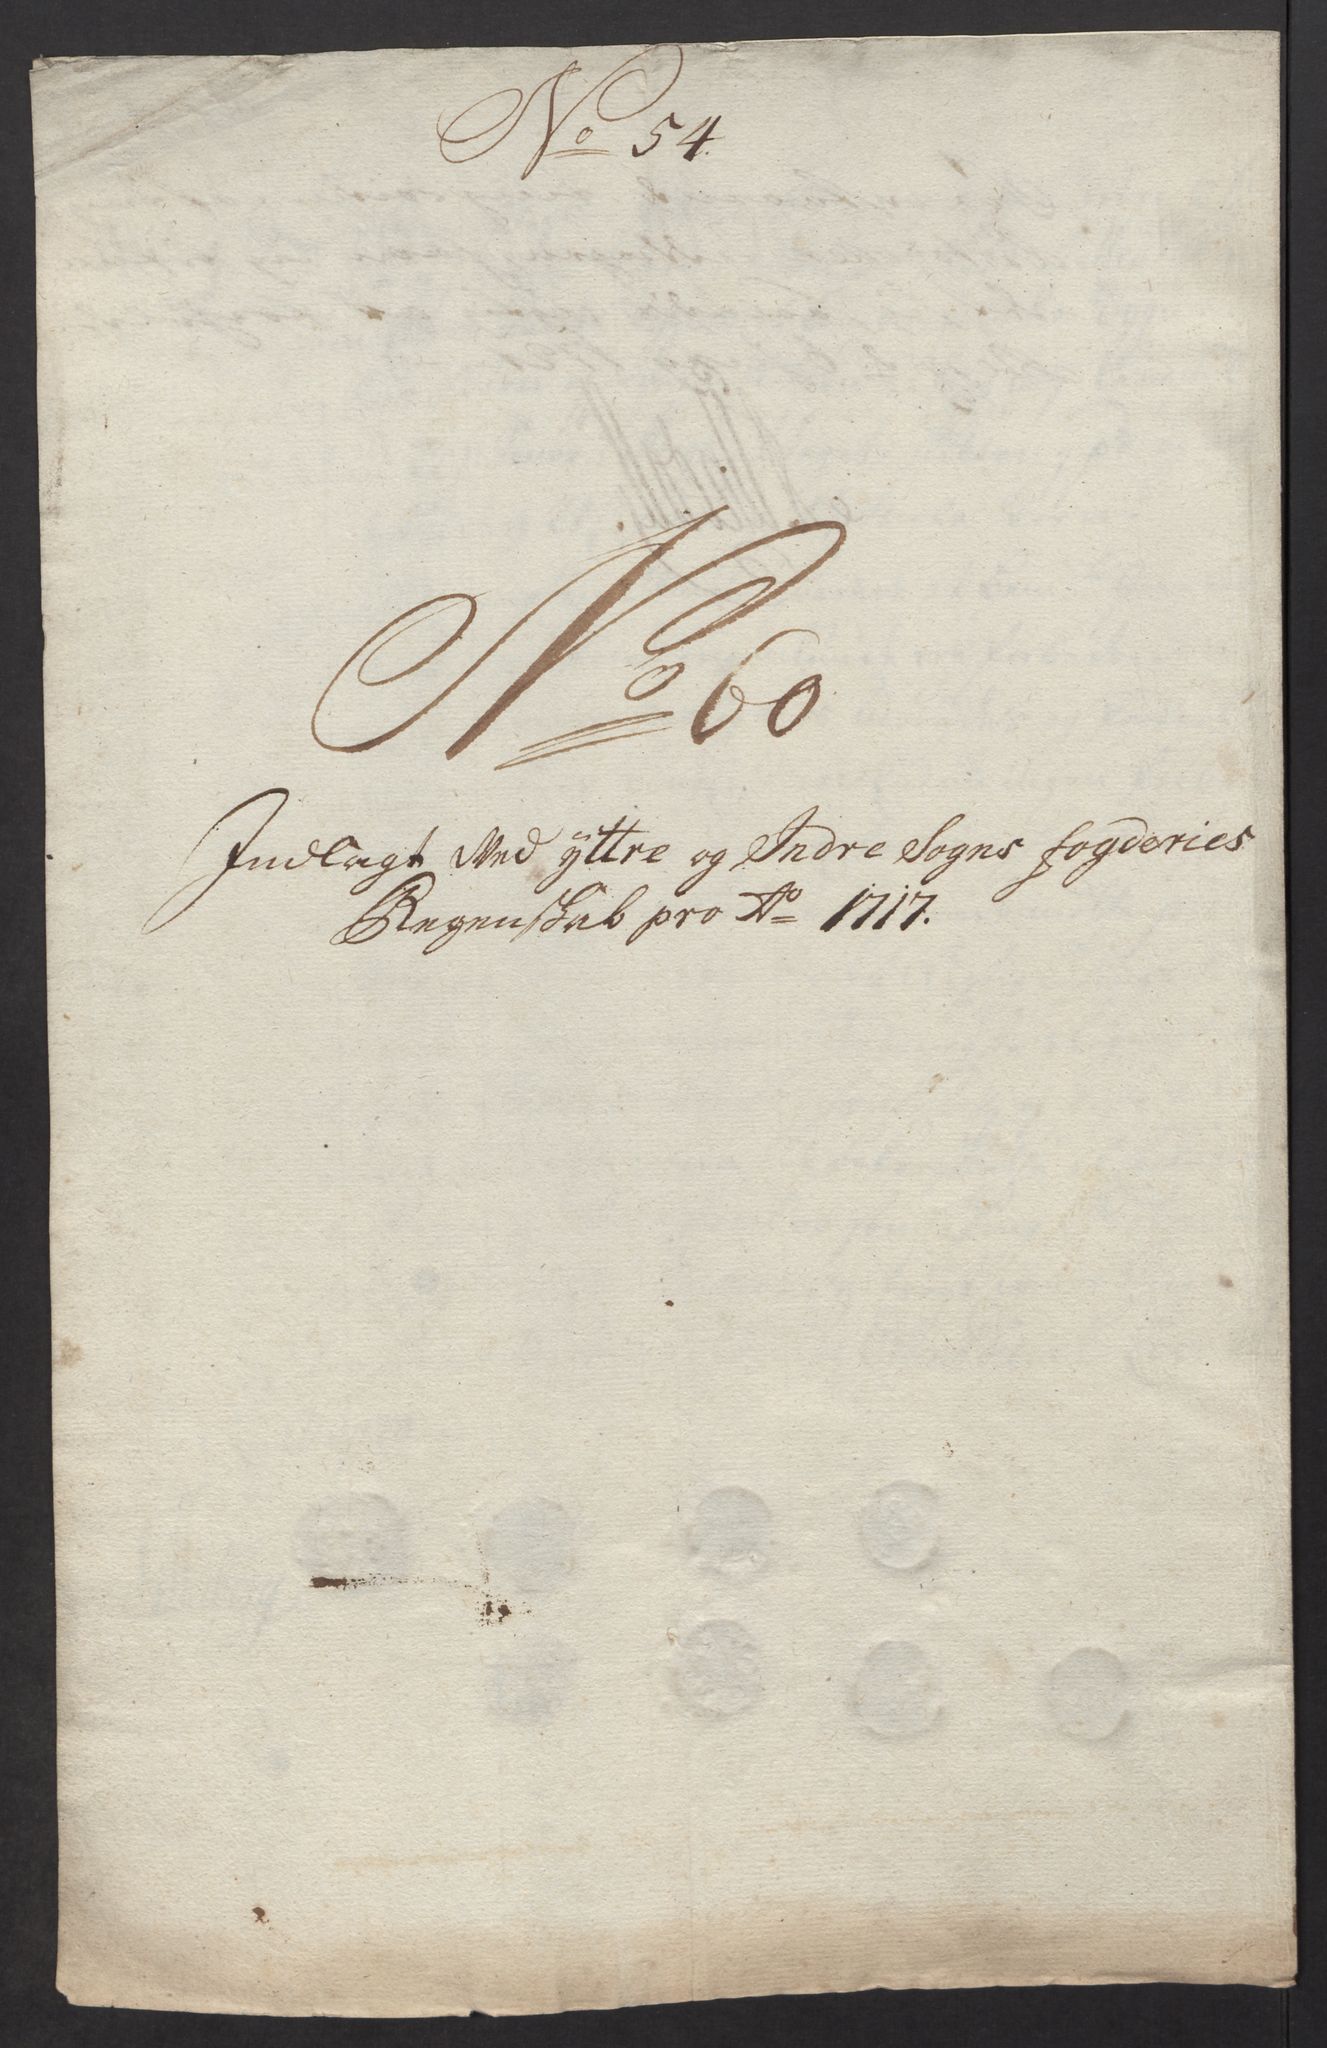 No 54.
No 60
Indlagt Med ÿttre og Indre Sogns fogderies
Regenskab pro Ao 1717.